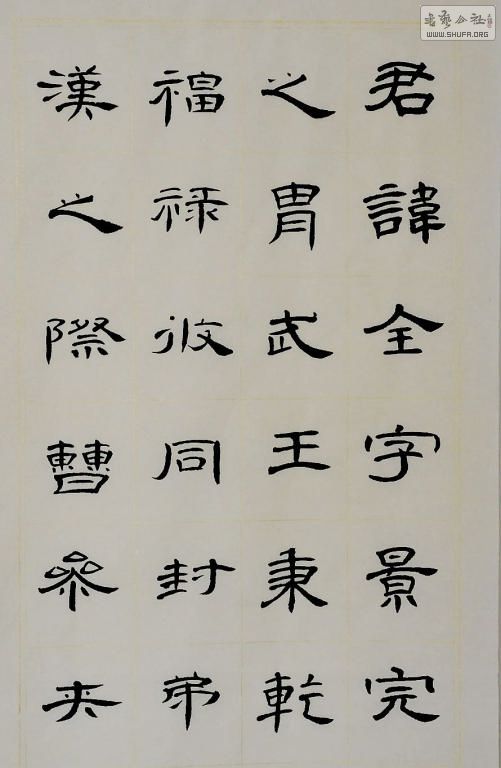 書藝公社
WWW.SHUFA.ORG
君諱全字景完
之胄武王秉乾
福禄攸同封弟
漢之際曹參夾